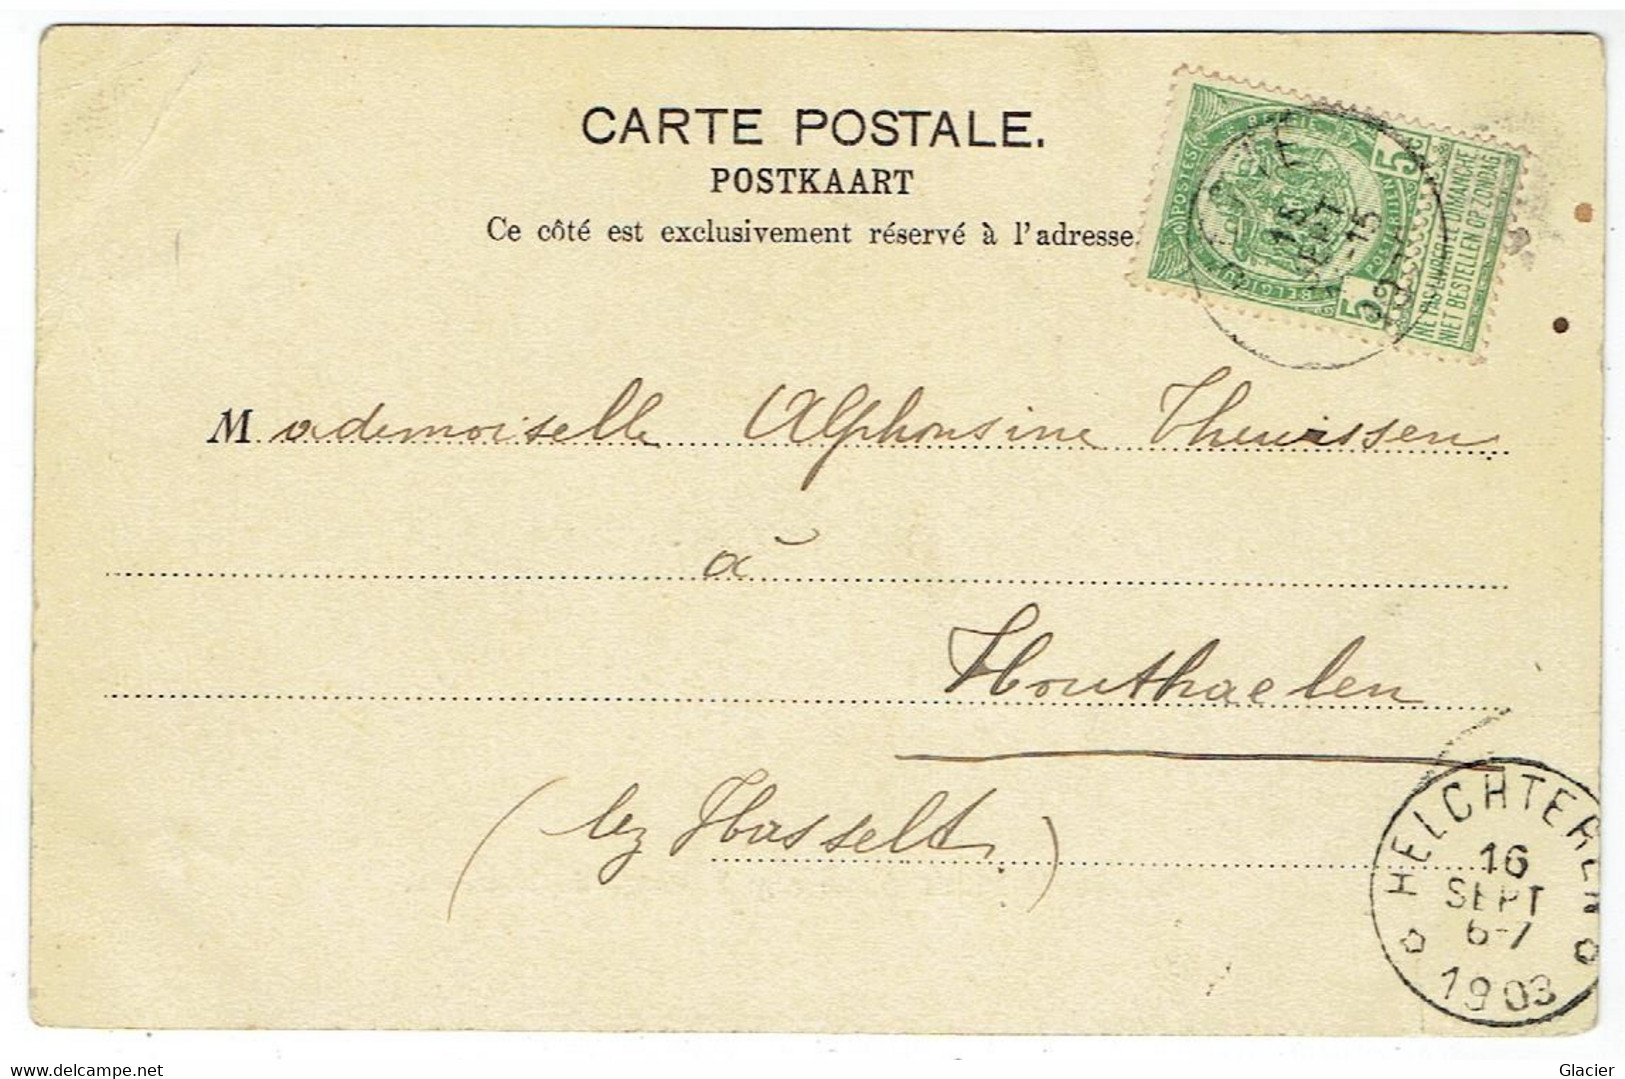 CARTE POSTALE.
POSTKAART
Ce côté est exclusivement réservé à l'adresse.
POSTES 5c BELGIQUE
NE PAS LIVRER LE DIMANCHE
NIET BESTELLEN OP ZONDAG
15
SEPT
1903
Mademoiselle Alphonsine Theuissen
à
Houthaelen
(bez Hasselt.)
HELCHTEREN
16
SEPT
6-7
1903
delcampe.net
Glacier